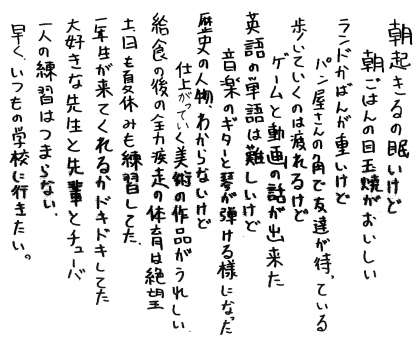 朝起きるの眠いけど
朝ごはんの目玉焼がおいしい
ランドかばんが重いけど
パン屋さんの角で友達が待っている
歩いていくのは疲れるけど
ゲームと動画の話が出来た
英語の単語は難しいけど
音楽のギターと琴が弾ける様になった
歴史の人物、わからないけど
仕上がっていく美術の作品がうれしい
給食の後の全力疾走の体育は絶望
土日も夏休みも練習してた
一年生が来てくれるかドキドキしてた
大好きな先生と先輩とチューバ
一人の練習はつまらない、
早くいつもの学校に行きたい。